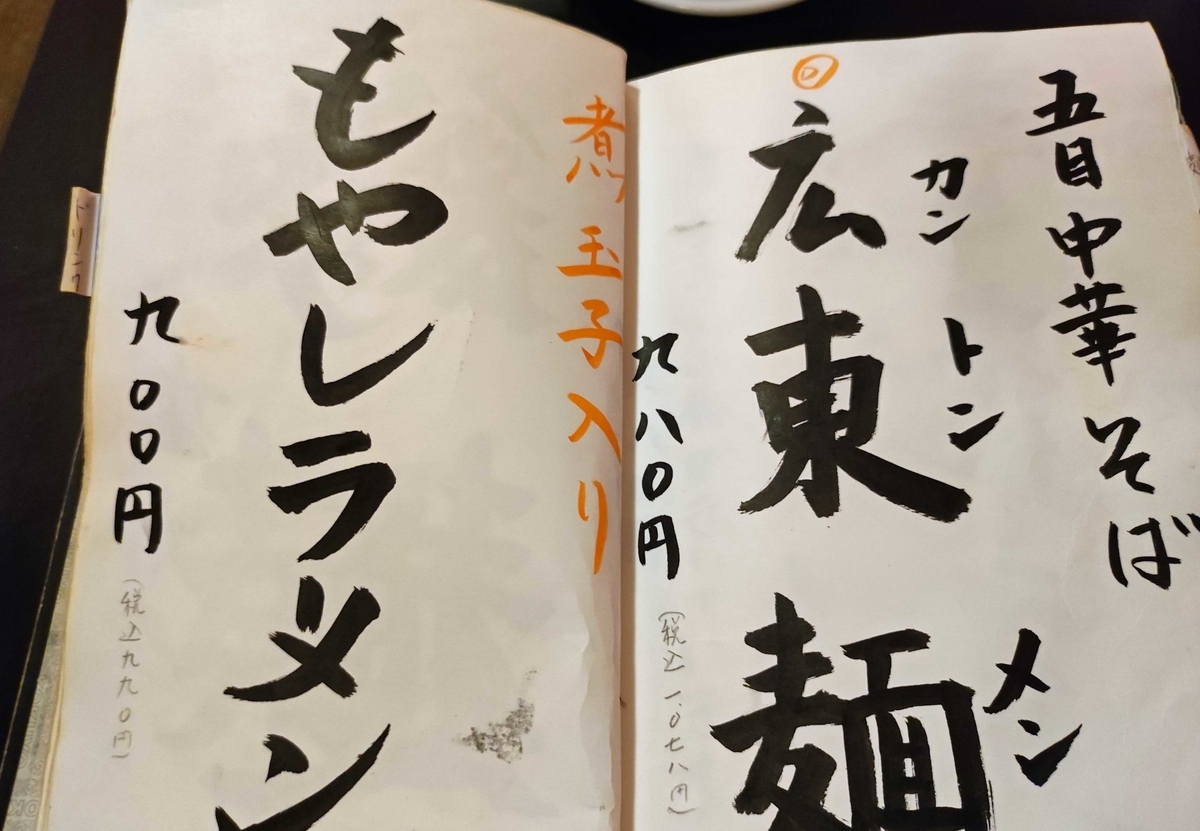 五目中華そば
カントンメン
回
広東麺
九八〇円
(税込一、〇七八円)
煮玉子入り
もやしラーメン
九〇〇円
(税込九九〇円)
ドリンク